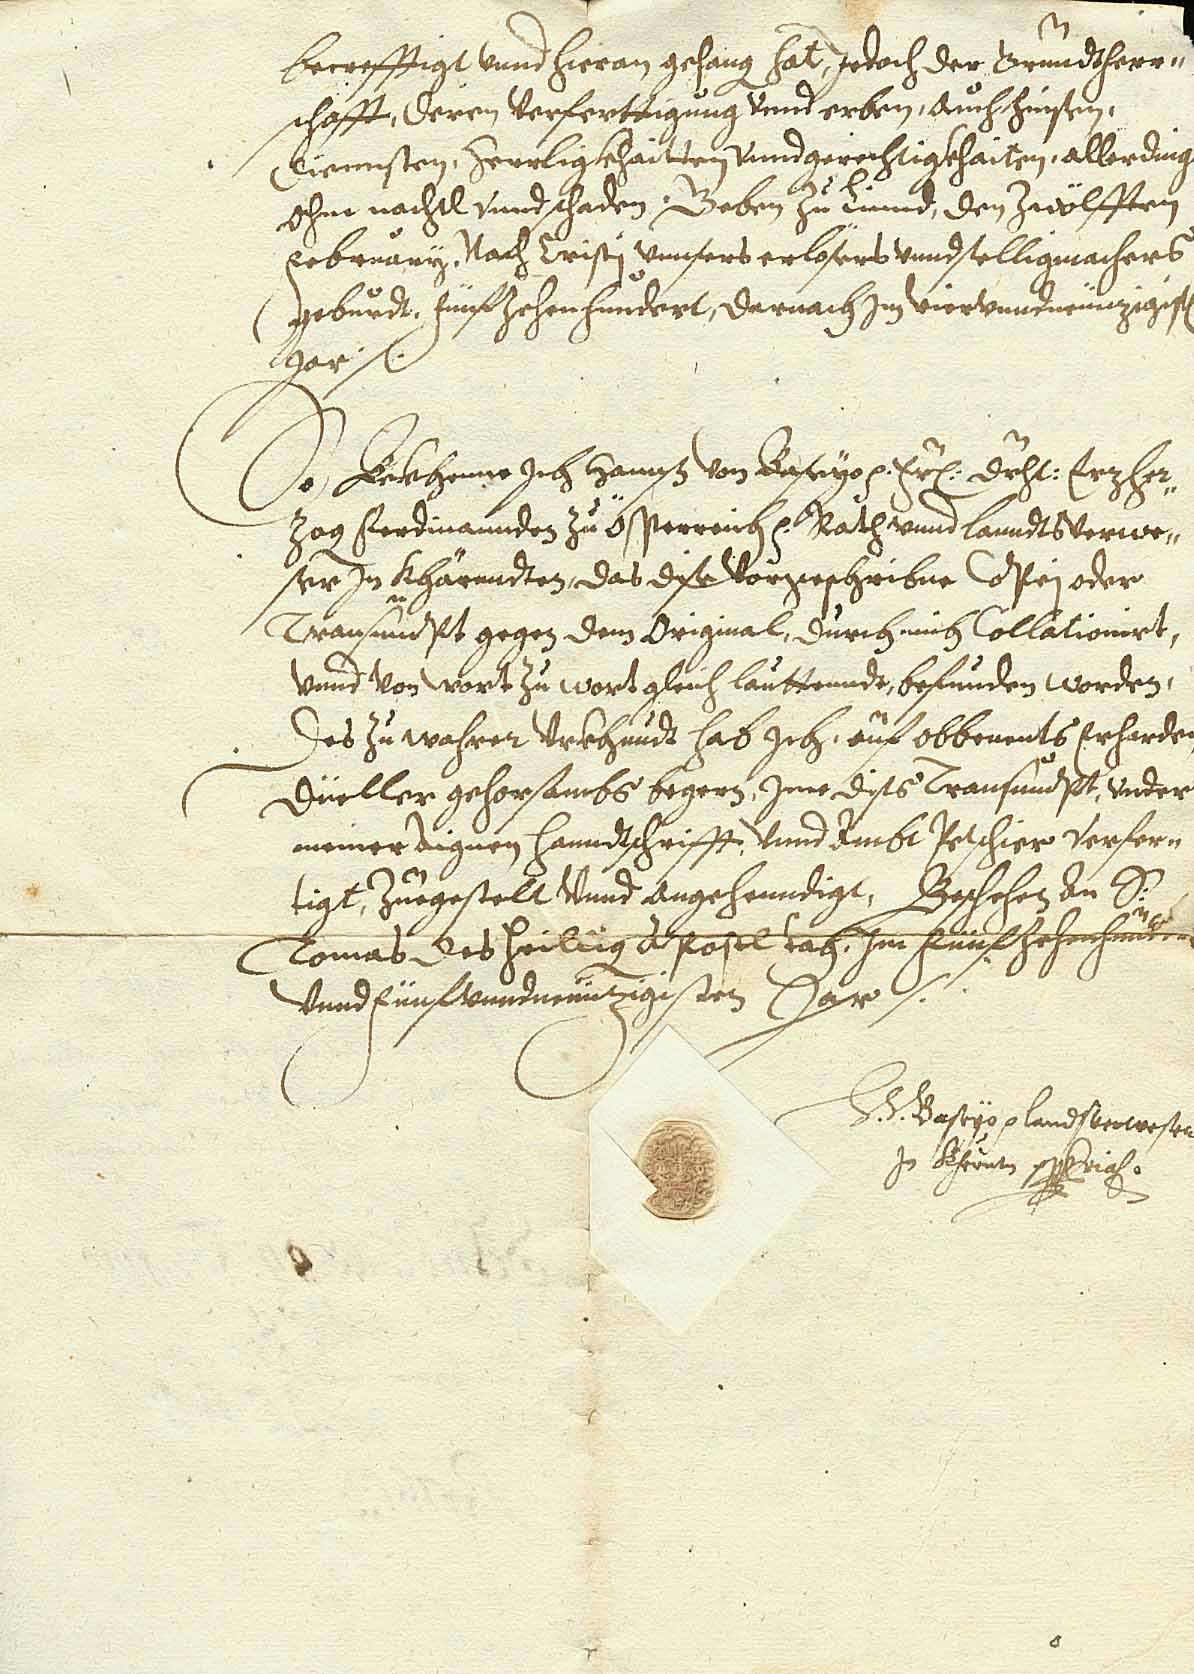 becrefftigt vnnd hieran gehang hat, Jedoch der Grundtherr=
schafft, deren verferttigung vnnd erben, auch Zinsen,
Diennsten, Herrligkhaitten vnnd gerechtigkhaiten, allerding
ohne nachtl vnnd schaden. Geben Zu Lienndt, den Zwölfften
February, Nach Cristj vnnsers erlösers vnnd selligmachers
geburdt, fünffzehenhundert, darnach Im viervnndneünzigist
Jar /.
Bekhenne Ich Hannß von Basseyo p. Frl: Drht: Erzher=
zog Ferdinannden Zu Össterreich p. Rath vnnd lanndtsverwe=
ser In Khärnndten, das dise vorgeschribne Copej oder
Transsumpt gegen dem Original, durch mich Collationirt,
vnnd von wort Zu wort gleich lauttennde, befunden worden,
Des Zu wahrer Vrkhundt hab Ich, auf obbenents Erharden
Düeller gehorsambs begern, Ime dits Transsumpt, vnder
meiner Aignen hanndtschrifft, vnnd Ambt Petschier verfer=
tigt, Zuegestelt vnnd angehenndigt, Beschehen an S:
Tomas des heillig Apostl tag, Im Fünffzehenhundert
vnnd fünffvnndneünzigisten Jar /.
Basseyo p landsverweser
In Khärntn